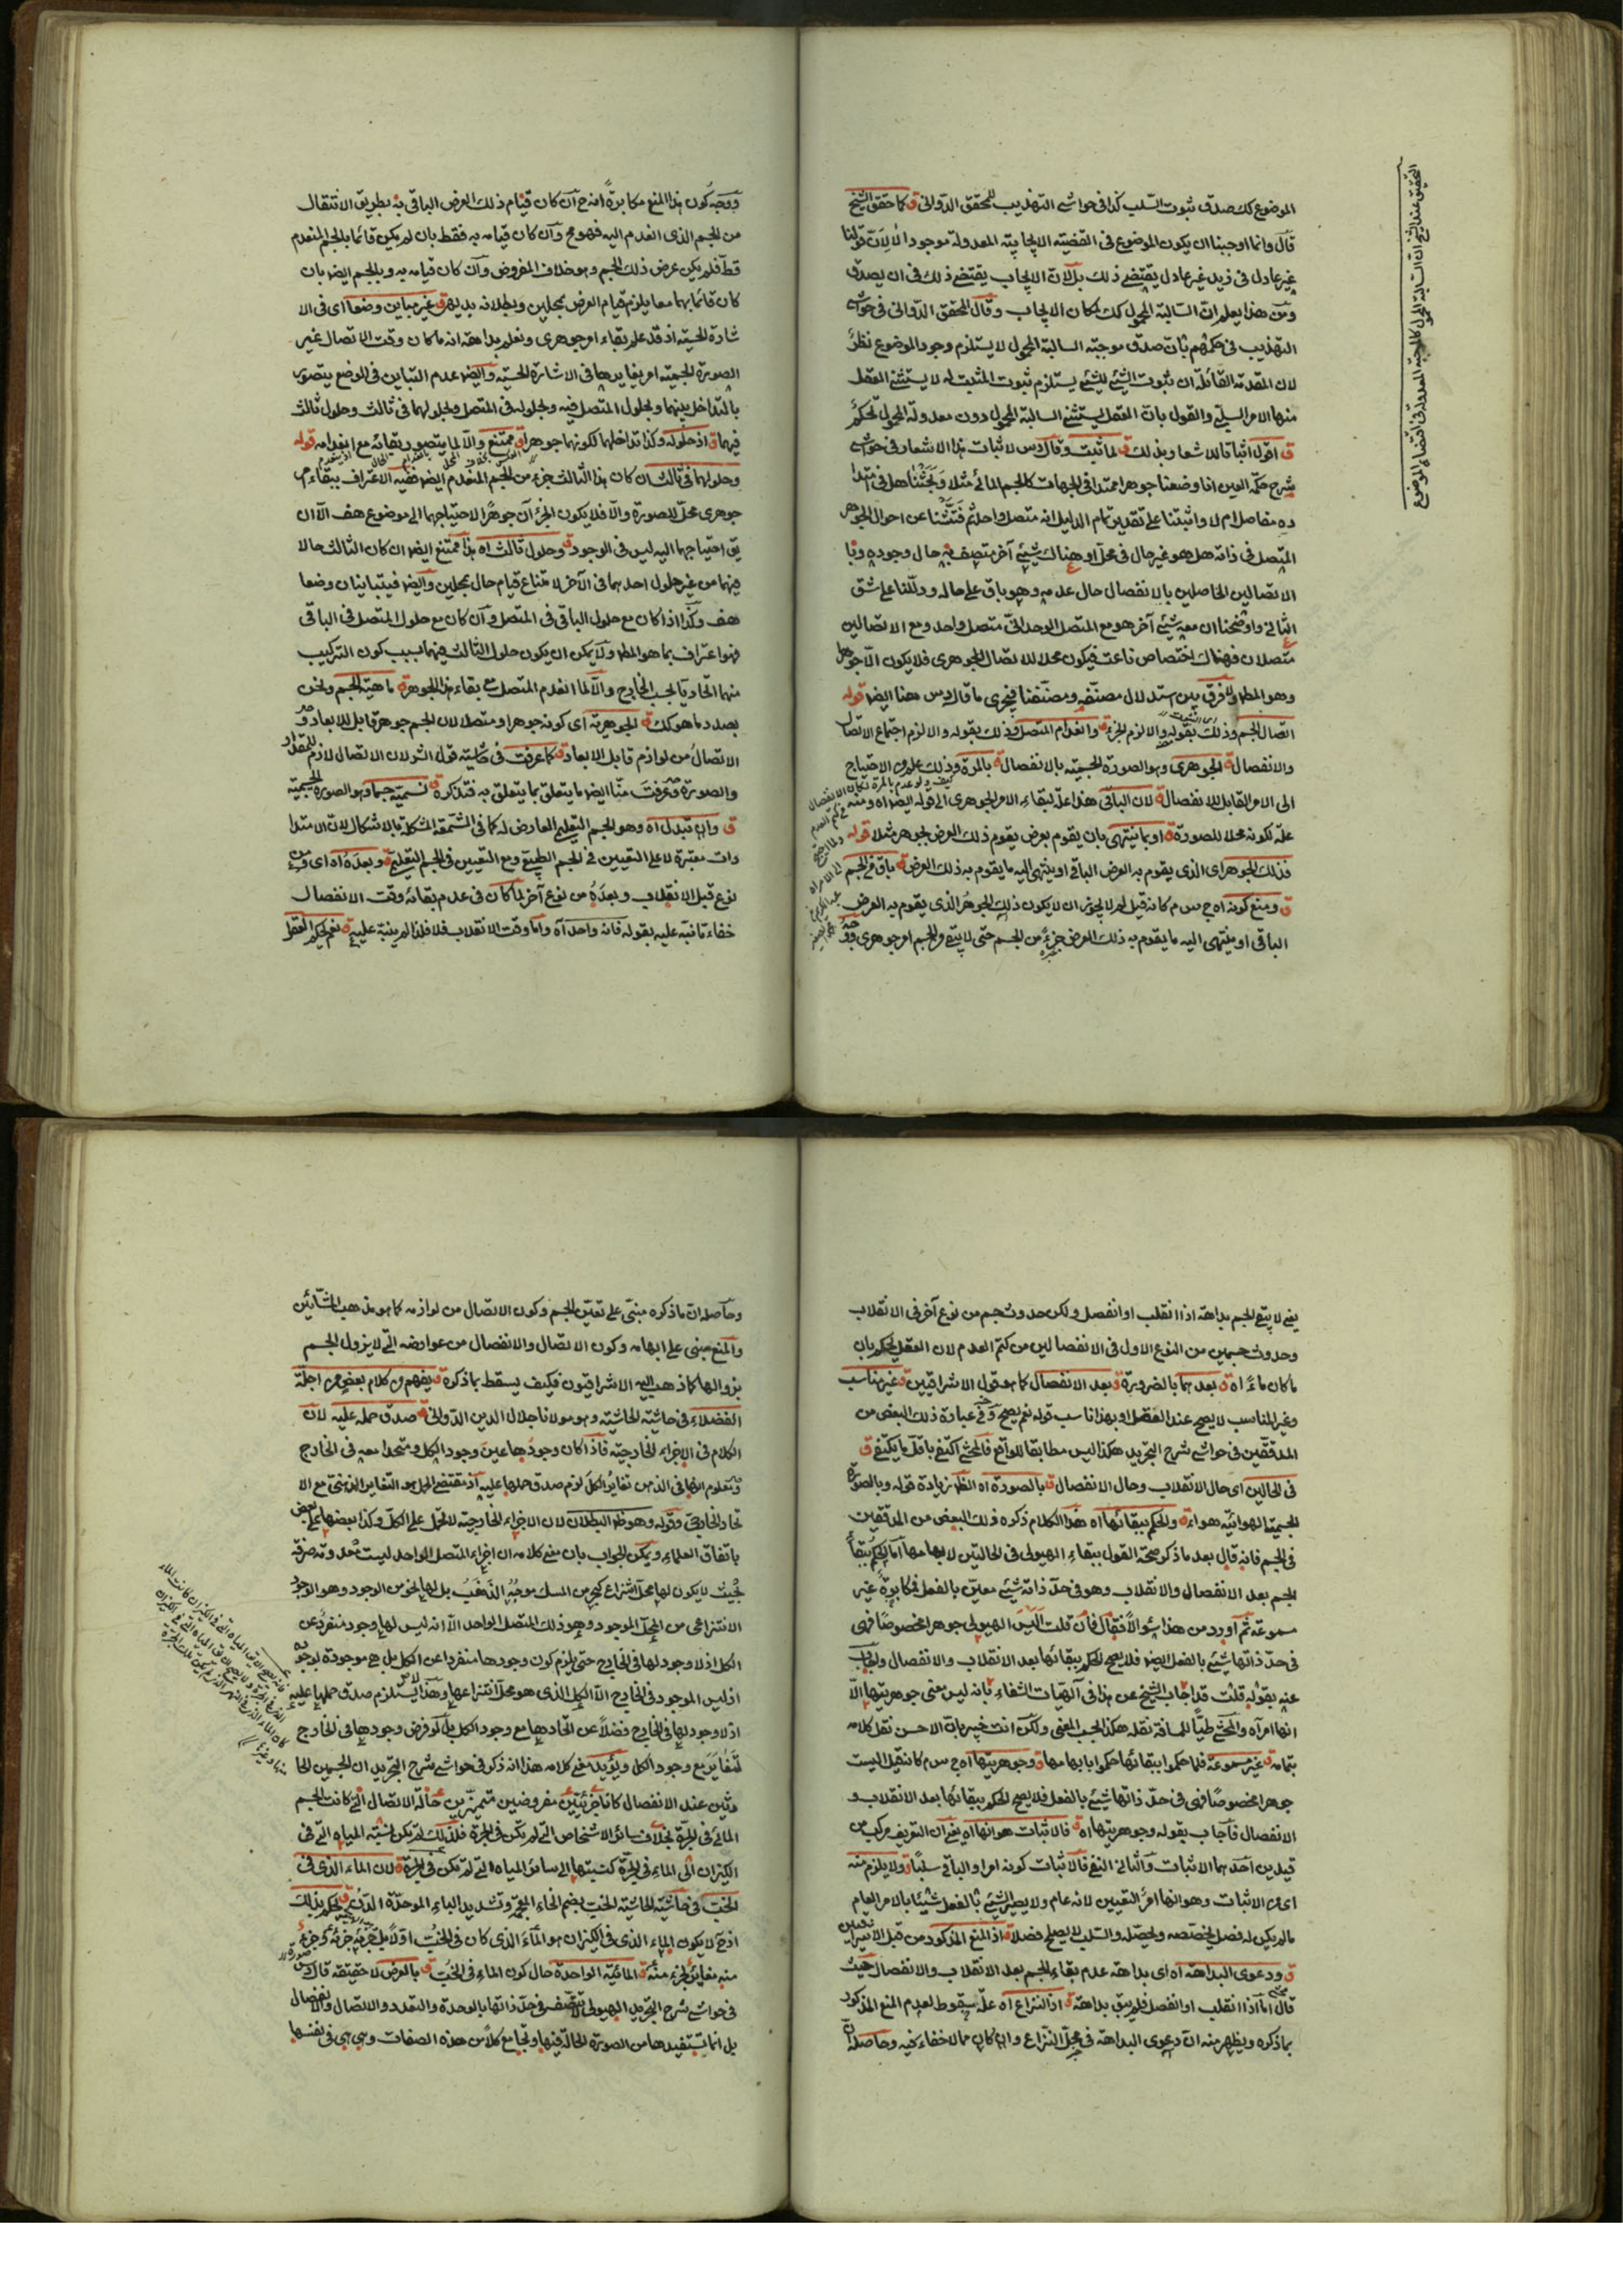 الموضوع كك صدق ثبوت السلب كذا فى حواشى التهذيب للمحقق الدوانى ق كما حقق الشيخ
قال وانما اوجبنا ان يكون الموضوع فى القضية الايجابية المعدولة موجودا لا لان قولنا
غير عادل فى زيد غير عادل يقتضى ذلك بل لان الايجاب يقتضى ذلك فى ان يصدق
ومن هذا يعلم ان السالبة المحمول كك لمكان الايجاب وقال المحقق الدوانى فى حواشى
التهذيب فى حكمهم بان صدق موجبة السالبة المحمول لا يستلزم وجود الموضوع نظر
لان المقدمة القائلة ان ثبوت الشئ للشئ يستلزم ثبوت المثبت له لا يستثنى العقل
منها الامر السلبى والقول بان العقل يستثنى السالبة المحمول دون معدولة المحمول تحكم
ق اقول اثباتا للاشعار وبذلك ق لما ثبت وقال س لاثبات هذا الاشعار فى حواشى
شرح حكمة العين انا وضعنا جوهرا ممتدا فى الجهات كالجسم المائى مثلا وبحثنا هل فى امتدا
ده مفاصل ام لا واثبتنا على تقدير تمام الدليل انه متصل واحد ثم فتشنا عن احوال الجوهر
المتصل فى ذاته هل هو غير حال فى محل او هناك شئ آخر متصف به حال وجوده وبا
الاتصالين الحاصلين بالانفصال حال عدمه وهو باق على حاله ودللنا على شق
الثانى واوضحنا ان معه شئ آخر هو مع المتصل الوحدانى متصل واحد ومع الاتصالين
متصلان فهناك اختصاص ناعت فيكون محلا للاتصال الجوهرى فلا يكون الا جوهرا
وهو المط ولا فرق بين استدلال مصنفه ومصنفنا فيجرى ما قال س هنا ايضا قوله
اتصال الجسم وذلك بقوله والا لزم الجزء ق وانعدام المتصل وذلك بقوله والا لزم اجتماع الاتصال
والانفصال ق الجوهرى وهو الصورة الجسمية بالانفصال ق بالمرة وذلك علم من الاحتياج
الى الامر القابل للانفصال ق لان الباقى هذا علة لبقاء الامر الجوهرى الى قوله ايضا اه ومنه
علة لكونه محلا للصورة ق او بما ينتهى بان يقوم بعرض يقوم ذلك العرض بجوهر مثلا قوله
فذلك الجوهر اى الذى يقوم به العرض الباقى او ينتهى اليه ما يقوم به ذلك العرض ق باق فى الجسم
ق ومنع كونه اه ج س م كانه قيل لم لا يجوز ان لا يكون ذلك الجوهر الذى يقوم به العرض
الباقى او ينتهى اليه ما يقوم به ذلك العرض جزء من الجسم حتى لا يبقى فى الجسم امر جوهرى
ووجه كون هذا المنع مكابرة انه ح ان كان قيام ذلك العرض الباقى به بطريق الانتقال
من الجسم الذى انعدم اليه فهو مح وان كان قيامه به فقط بان لم يكن قائما بالجسم المنعدم
قط فلم يكن عرض ذلك الجسم وهو خلاف المفروض وان كان قيامه به وبالجسم ايضا بان
كان قائما بهما معا يلزم قيام العرض بمحلين وبطلانه بديهى ق غير مباين وضعا اى فى الا
شارة الحسية اذ قد علم بقاء امر جوهرى ونعلم بداهة انه ما كان وقت الاتصال غير
الصورة الجسمية امر يغايرها فى الاشارة الحسية وايضا عدم التباين فى الوضع يتصور
بالتداخل بينهما وبحلول المتصل فيه وبحلوله فى المتصل وبحلولهما فى ثالث وحلول ثالث
فيهما ق اذ حلوله وكذا تداخلهما لكونهما جوهرا ق ممتنع والا لما يتصور بقائه مع انعدامه قوله
وحلولهما فى ثالث ان كان هذا الثالث جزء من الجسم المنعدم ايضا ففيه الاعتراف ببقاء امر
جوهرى محل للصورة والا فلا يكون الجزء ان جوهرا لاحتياجهما الى موضوع هف الا ان
يق احتياجهما اليه ليس فى الوجود ق وحلول ثالث اه هذا ممتنع ايضا ان كان الثالث حالا
فيهما من غير حلول احدهما فى الآخر لامتناع قيام حال بمحلين وايضا فيتباينان وضعا
هف وكذا اذا كان مع حلول الباقى فى المتصل وان كان مع حلول المتصل فى الباقى
فهو اعتراف بما هو المط ولا يمكن ان يكون حلول الثالث فيهما بسبب كون التركيب
منهما اتحاديا بحسب الخارج والا لما انعدم المتصل مع بقاء هذا الجوهر ق ماهية الجسم ونحن
بصدد ما هو كك ق الجوهرية اى كونه جوهرا ومتصلا لان الجسم جوهر قابل للابعاد و
الاتصال من لوازم قابل الابعاد ق كما عرفت فى حاشية قول الش لان الاتصال لازم للمقدار
والصورة وعرفت منا ايضا ما يتعلق بما يتعلق به فتذكره ق تسمية جسما وهو الصورة الجسمية
ق وان تبدل اه وهو الجسم التعليمى العارض له كما فى الشمعة المشكلة بالاشكال لان الامتدا
دات معتبرة لا على التعيين فى الجسم الطبيعى ومع التعيين فى الجسم التعليمى ق وبعده اه اى من
نوع قبل الانقلاب وبعده من نوع آخر لما كان فى عدم بقائه وقت الانفصال
خفاء ما نبه عليه بقوله فانه واحد اه واما وقت الانقلاب فلا فلذا لم ينبه عليه ق نعم يحكم العقل
يعنى لا يبقى الجسم بداهة اذا انقلب او انفصل ولكن حدوث جسم من نوع آخر فى الانقلاب
وحدوث جسمين من النوع الاول فى الانفصال ليس من كتم العدم لان العقل يحكم بان
ما كان ماء اه ق بعدهما بالضرورة ق بعد الانفصال كما هو قول الاشراقيين ق غير مناسب
وغير المناسب لا يصح عند العقل او بهذا ناسب قوله نعم يصح وفى عبارة ذلك البعض من
المدققين فى حواشى شرح التجريد هكذا ليس مطابقا للواقع فالمحشى اكتفى باقل ما يكتفى ق
فى الحالين اى حال الانقلاب وحال الانفصال ق بالصورة اه الظ زيادة قوله وبالصورة
الجسمية الهوائية هواء ق والحكم ببقائها اه هذا الكلام ذكره ذلك البعض من المدققين
فى الجسم فانه قال بعد ما ذكر صحة القول ببقاء الهيولى فى الحاليتين لابهامها اما الحكم ببقاء
الجسم بعد الانفصال والانقلاب وهو فى حد ذاته شئ معين بالفعل فمكابرة غير
مسموعة ثم اورد من هذا سؤالا فقال فان قلت اليس الهيولى جوهرا مخصوصا فهى
فى حد ذاتها شئ بالفعل ايضا فلا يصح الحكم ببقائها بعد الانقلاب والانفصال واجاب
عنه بقوله قلت قد اجاب الشيخ عن هذا فى آلهيات الشفاء بانه ليس معنى جوهريتها الا
انها امر اه والمحشى طيا للمسافة نقله هكذا بحسب المعنى ولكن انت خبير بان الاحسن نقل كلامه
بتمامه ق غير مسموعة فلما حكموا ببقائها حكموا بابهامها ق وجوهريتها اه ج س م كانه قيل اليست
جوهرا مخصوصا فهى فى حد ذاتها شئ بالفعل فلا يصح الحكم ببقائها بعد الانقلاب و
الانفصال فاجاب بقوله وجوهريتها اه ق فالاثبات هو انها اه يعنى ان التعريف مركب من
قيدين احدهما الاثبات والثانى النفى فالاثبات كونه امرا والباقى سلبا ق ولا يلزم منه
اى من الاثبات وهو انها امر التعيين لانه عام ولا يصير الشئ بالفعل شيئا بالامر العام
ما لم يكن له فصل يخصصه ويحصله والسلب لا يصلح فصلا ق اذ المنع المذكور من قبل الاشراقيين
ق ودعوى البداهة اه اى بداهة عدم بقاء الجسم بعد الانقلاب والانفصال حيث
قال اما اذا انقلب او انفصل فلم يبق بداهة ق اذ النزاع اه علة سقوط لعدم المنع المذكور
بما ذكره ويظهر منه ان دعوى البداهة فى محل النزاع وان كان مما لا خفاء فيه وحاصله ان
وحاصله ان ما ذكره مبنى على تعين الجسم وكون الاتصال من لوازمه كما هو مذهب المشائين
والمنع مبنى على ابهامه وكون الاتصال والانفصال من عوارضه التى لا يزول الجسم
بزوالها كما ذهب اليه الاشراقيون فكيف يسقط بما ذكره ق يفهم من كلام بعض من اجلة
الفضلاء فى حاشية الحاشية وهو مولانا جلال الدين الدوانى ق صدق حمله عليه لان
الكلام فى الاجزاء الخارجية فاذا كان وجودها عين وجود الكل ومتحدا معه فى الخارج
ومعلوم انها فى الذهن تغاير الكل لزم صدق حملها عليه اذ مقتضى الحمل هو التغاير الذهنى مع الا
تحاد الخارجى وقوله وهو ظ البطلان لان الاجزاء الخارجية لا تحمل على الكل وكذا بعضها على بعض
باتفاق العلماء ويمكن الجواب بان معنى كلامه ان اجزاء المتصل الواحد ليست معدومة صرفة
بحيث لا يكون لها محل انتزاع كبحر من المسك موجه الذهب بل لها نحو من الوجود وهو الوجود
الانتزاعى من المحل الموجود وهو ذلك المتصل الواحد الا انه ليس لها وجود منفرد عن
الكل اذ لا وجود لها فى الخارج حتى يلزم كون وجودها منفردا عن الكل بل هى موجودة بوجوده
اذ ليس الموجود فى الخارج الا الكل الذى هو محل انتزاعها وهذا لا يستلزم صدق حملها عليه
اذ لا وجود لها فى الخارج فضلا عن اتحادها مع وجود الكل بل لو فرض وجودها فى الخارج
لتغاير مع وجود الكل ويؤيد معنى كلامه هذا انه ذكر فى حواشى شرح التجريد ان الجسمين الحا
دثين عند الانفصال كانا جزئيتين مفروضين متميزين حالة الاتصال التى كانت الجسم
المائى فى الجرة بخلاف سائر الاشخاص التى لم يكن فى الجرة فلذلك لم يكن نسبة المياه التى فى
الكيزان الى الماء فى الجرة كنسبتها الى سائر المياه التى لم يكن فى الجرة ق لان الماء الذى فى
الخب فى حاشية الحاشية الخب بضم الخاء المعجمة وتشديد الباء الموحدة الدن ق يحكم بذلك
اذ ح لا يكون الماء الذى فى الكيزان هو الماء الذى كان فى الخب اولا بل جزئه جزئه وجزء
منه مغاير لجزء منه ق المائية الواحدة حال كون الماء فى الخب ق بالعرض لا حقيقة قال س
فى حواشى شرح التجريد الهيولى لا تتصف فى حد ذاتها بالوحدة والتعدد والاتصال والانفصال
بل انما يستفيدها من الصورة الحالة فيها وتجامع كلا من هذه الصفات وهى هى فى نفسها
التحقيق عند الشيخ ان السالبة المحمول كالموجبة المعدولة فى اقتضاء الموضوع